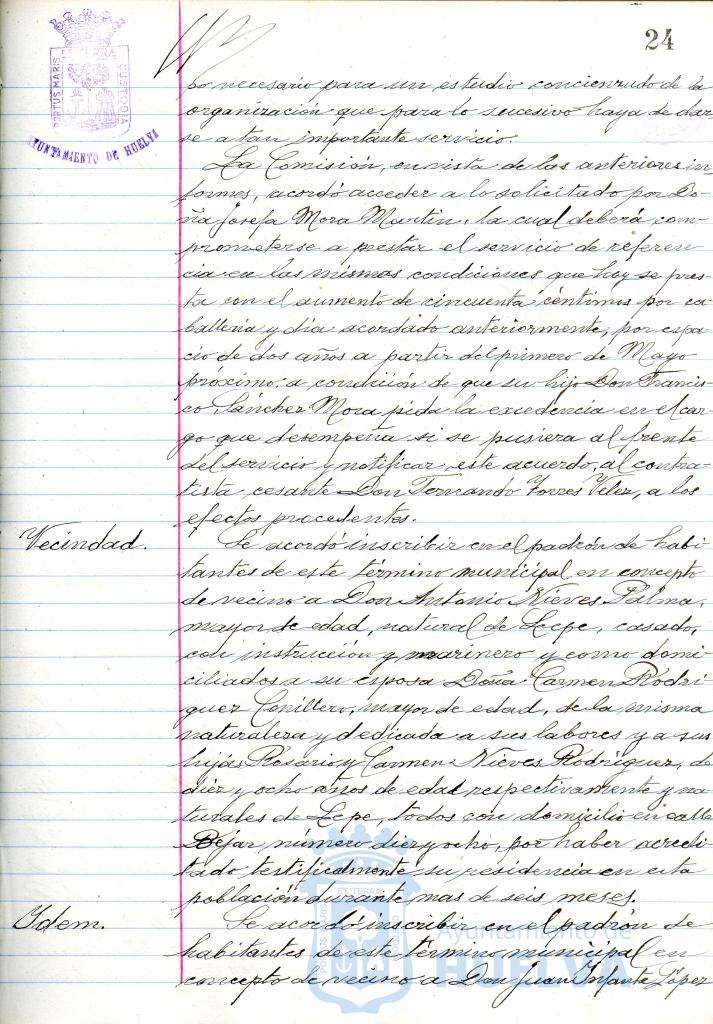 24
PORTUS MARIS ET TERRÆ CUSTODIA
AYUNTAMIENTO DE HUELVA
po necesario para un estudio concienzudo de la
organización que para lo sucesivo haya de dar-
se a tan importante servicio.
La Comisión, en vista de las anteriores in
formes, acordó acceder a lo solicitado por Do-
ña Josefa Mora Martin, la cual deberá com-
prometerse a prestar el servicio de referen-
cia en las mismas condiciones que hoy se pres-
ta con el aumento de cincuenta céntimos por ca-
ballería y día acordado anteriormente, por espa-
cio de dos años a partir del primero de Mayo
próximo, a condición de que su hijo Don Francis-
co Sánchez Mora pida la excedencia en el car-
go que desempeña si se pusiera al frente
del servicio y notificar este acuerdo, al contra-
tista cesante Don Fernando Torres Velez, a los
efectos procedentes.
Vecindad.
Se acordó inscribir en el padrón de habi-
tantes de este término municipal en concepto
de vecino a Don Antonio Nieves Palma,
mayor de edad, natural de Lepe, casado,
con instrucción y marinero y como domi-
ciliados a su esposa Doña Carmen Rodri-
guez, mayor de edad, de la misma
naturaleza y dedicada a sus labores y a sus
hijas Rosario y Carmen Nieves Rodriguez, de
diez y ocho años de edad respectivamente y na-
turales de Lepe, todos con domicilio en calle
Bejar, número diez y ocho, por haber acredi-
tado testificalmente su residencia en esta
población durante mas de seis meses.
Idem.
Se acordó inscribir en el padrón de
habitantes de este término municipal en
concepto de vecino a Don Juan Infante López
Ayuntamiento de
HUELVA